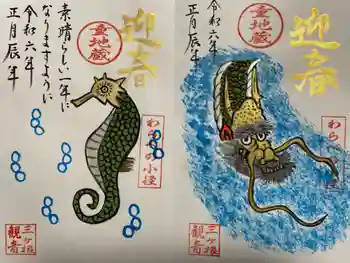 迎春
童地蔵
素晴らしい一年に
なりますように
令和六年
正月辰年
わらべの小径
三ヶ根
観音
迎春
童地蔵
令和六年
正月辰年
わら
三ヶ根
観音